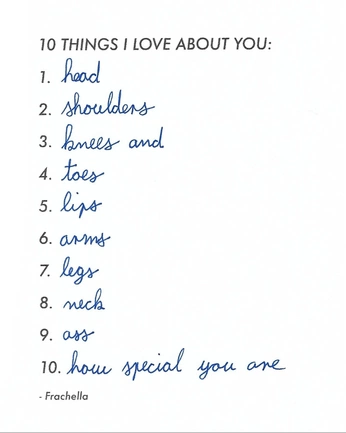 10 THINGS I LOVE ABOUT YOU:
1. head
2. shoulders
3. knees and
4. toes
5. lips
6. arms
7. legs
8. neck
9. ass
10. how special you are
- Frachella